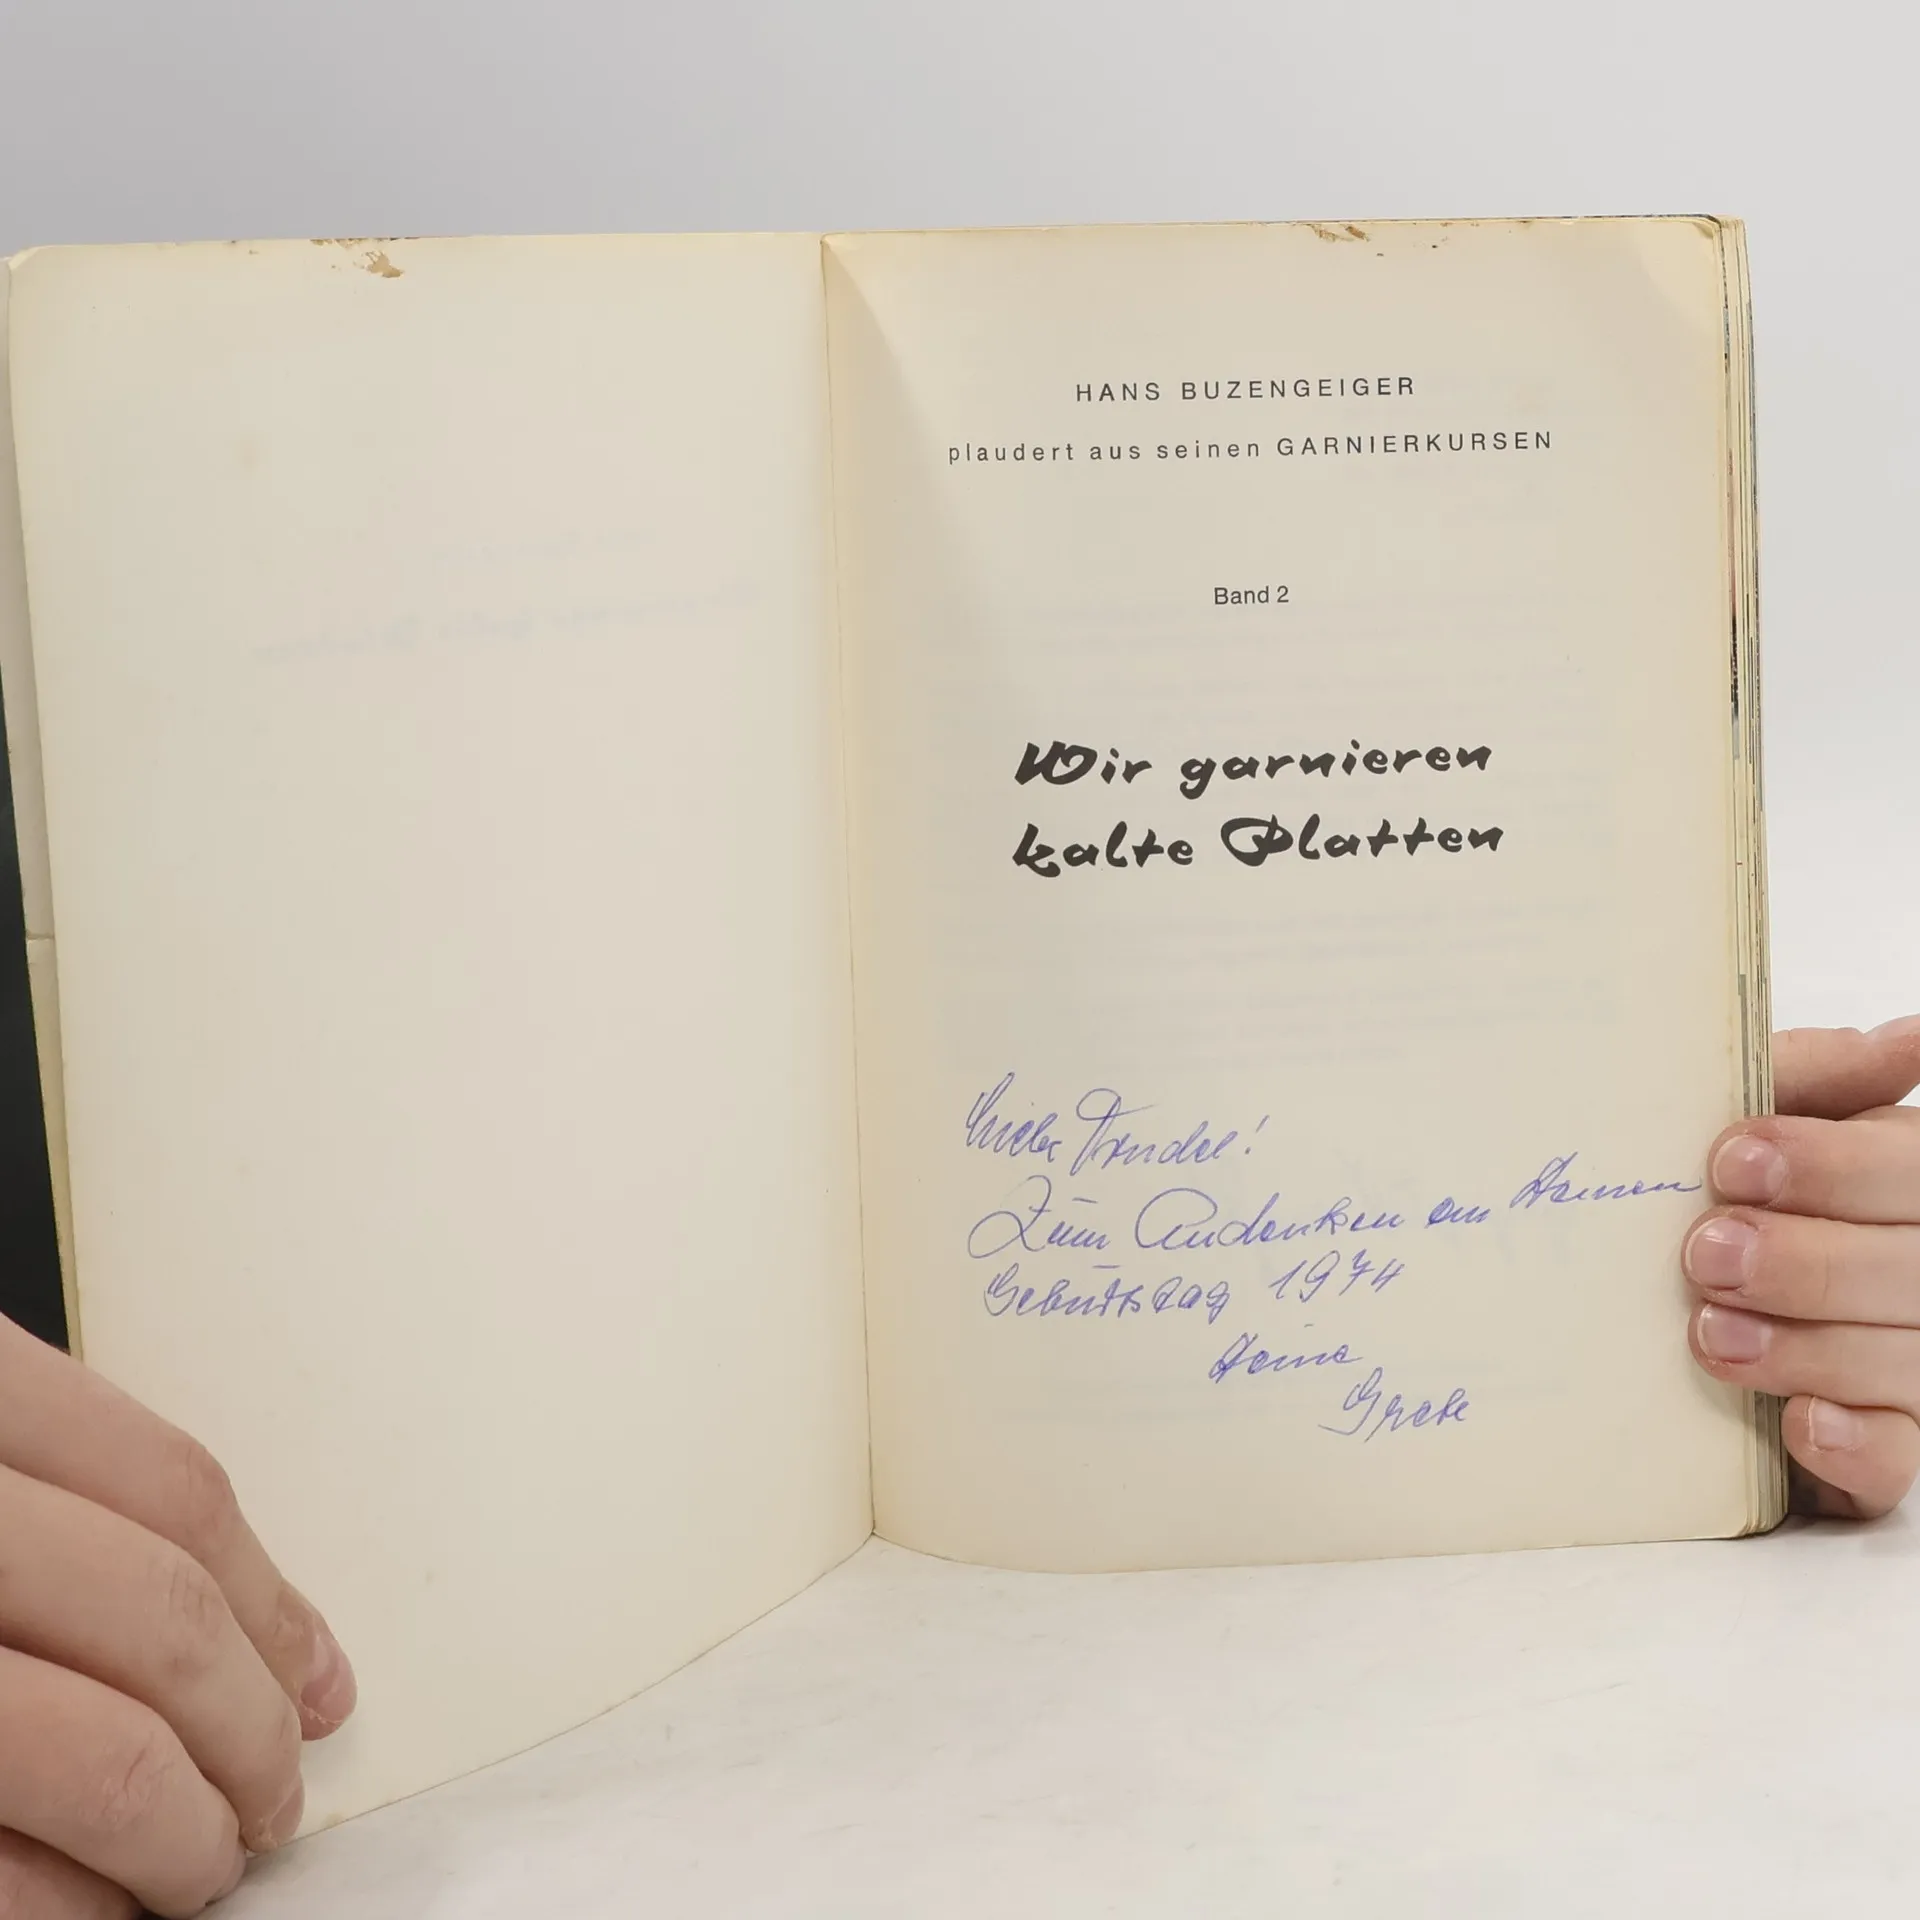 HANS BUZENGEIGER
plaudert aus seinen GARNIERKURSEN
Band 2
Wir garnieren
kalte Platten
Liebe Trudel!
Zum Andenken an Deinen
Geburtstag 1974
Deine
Grete